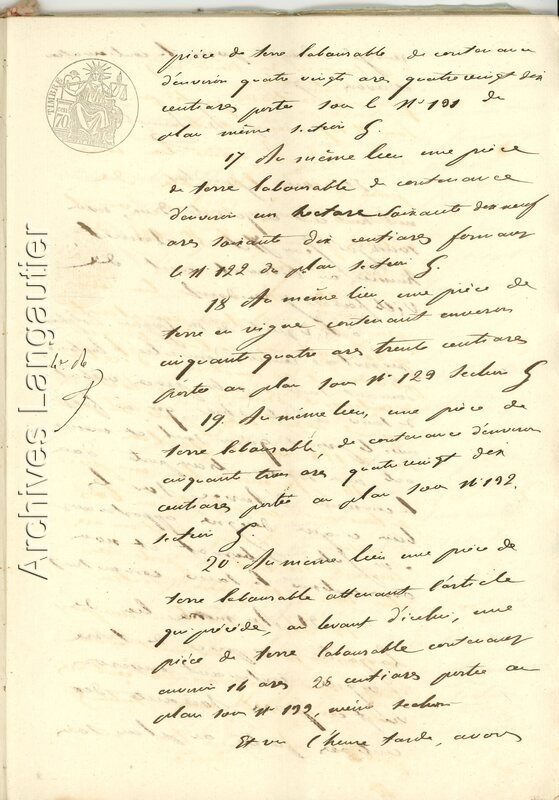 pièce de terre labourable de contenance
d'environ quatre vingts ares quatre vingt dix
centiares portée sous le N° 131 du
plan même section G.
17 Au même lieu une pièce
de terre labourable de contenance
d'environ un hectare soixante dix neuf
ares soixante dix centiares formant
le N° 122 du plan section G.
18 Au même lieu, une pièce de
terre en vigne contenant environ
cinquante quatre ares trente centiares
portée au plan sous N° 129 section G
19. Au même lieu, une pièce de
terre labourable, de contenance d'environ
cinquante trois ares quatre vingt dix
centiares portée au plan sous N° 132.
section G.
20. Au même lieu une pièce de
terre labourable attenant l'article
qui précède, au levant d'icelui, une
pièce de terre labourable contenant
environ 16 ares 25 centiares portée au
plan sous N° 133, même section
Et vu l'heure tarde, avons
TIMBRE
70
Archives Langautier